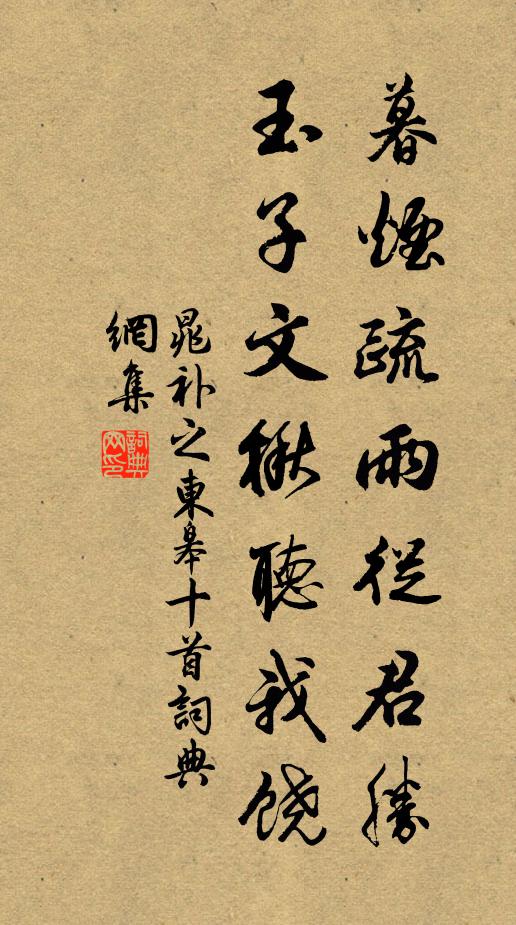 暮煙疏雨從君勝
玉子文楸聽我饒
晁补之東皋十首詞典
網集
詞典
网印